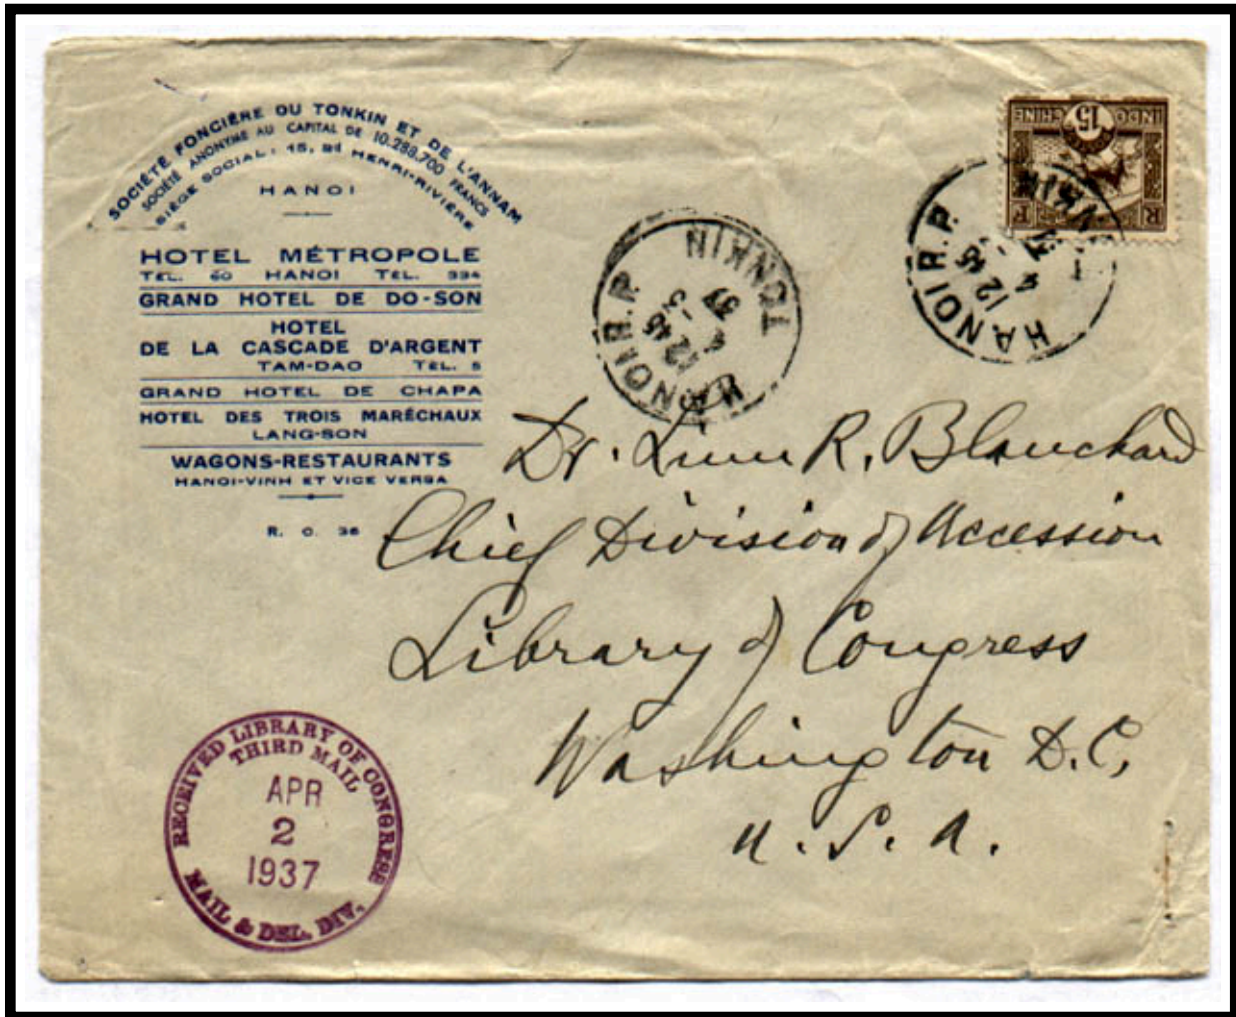 SOCIÉTÉ FONCIÈRE DU TONKIN ET DE L'ANNAM
SOCIÉTÉ ANONYME AU CAPITAL DE 10.288.700 FRANCS
SIÈGE SOCIAL: 15, Bd HENRI-RIVIÈRE
HANOI
HOTEL MÉTROPOLE
TÉL. 60 HANOI TÉL. 334
GRAND HOTEL DE DO-SON
HOTEL
DE LA CASCADE D'ARGENT
TAM-DAO TÉL. 5
GRAND HOTEL DE CHAPA
HOTEL DES TROIS MARÉCHAUX
LANG-SON
WAGONS-RESTAURANTS
HANOI-VINH ET VICE VERSA
R. C. 36
INDO CHINE
15
R F
HANOI R.P.
12 45
4
HANOI R.P.
12 45
4 - 3
37
TONKIN
Dr. Linn R. Blanchard
Chief Division of Accession
Library of Congress
Washington D.C,
U.S.A.
RECEIVED LIBRARY OF CONGRESS
THIRD MAIL
APR
2
1937
MAIL & DEL. DIV.